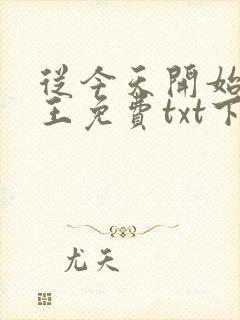 從今天開始
王免費txt下
尤天